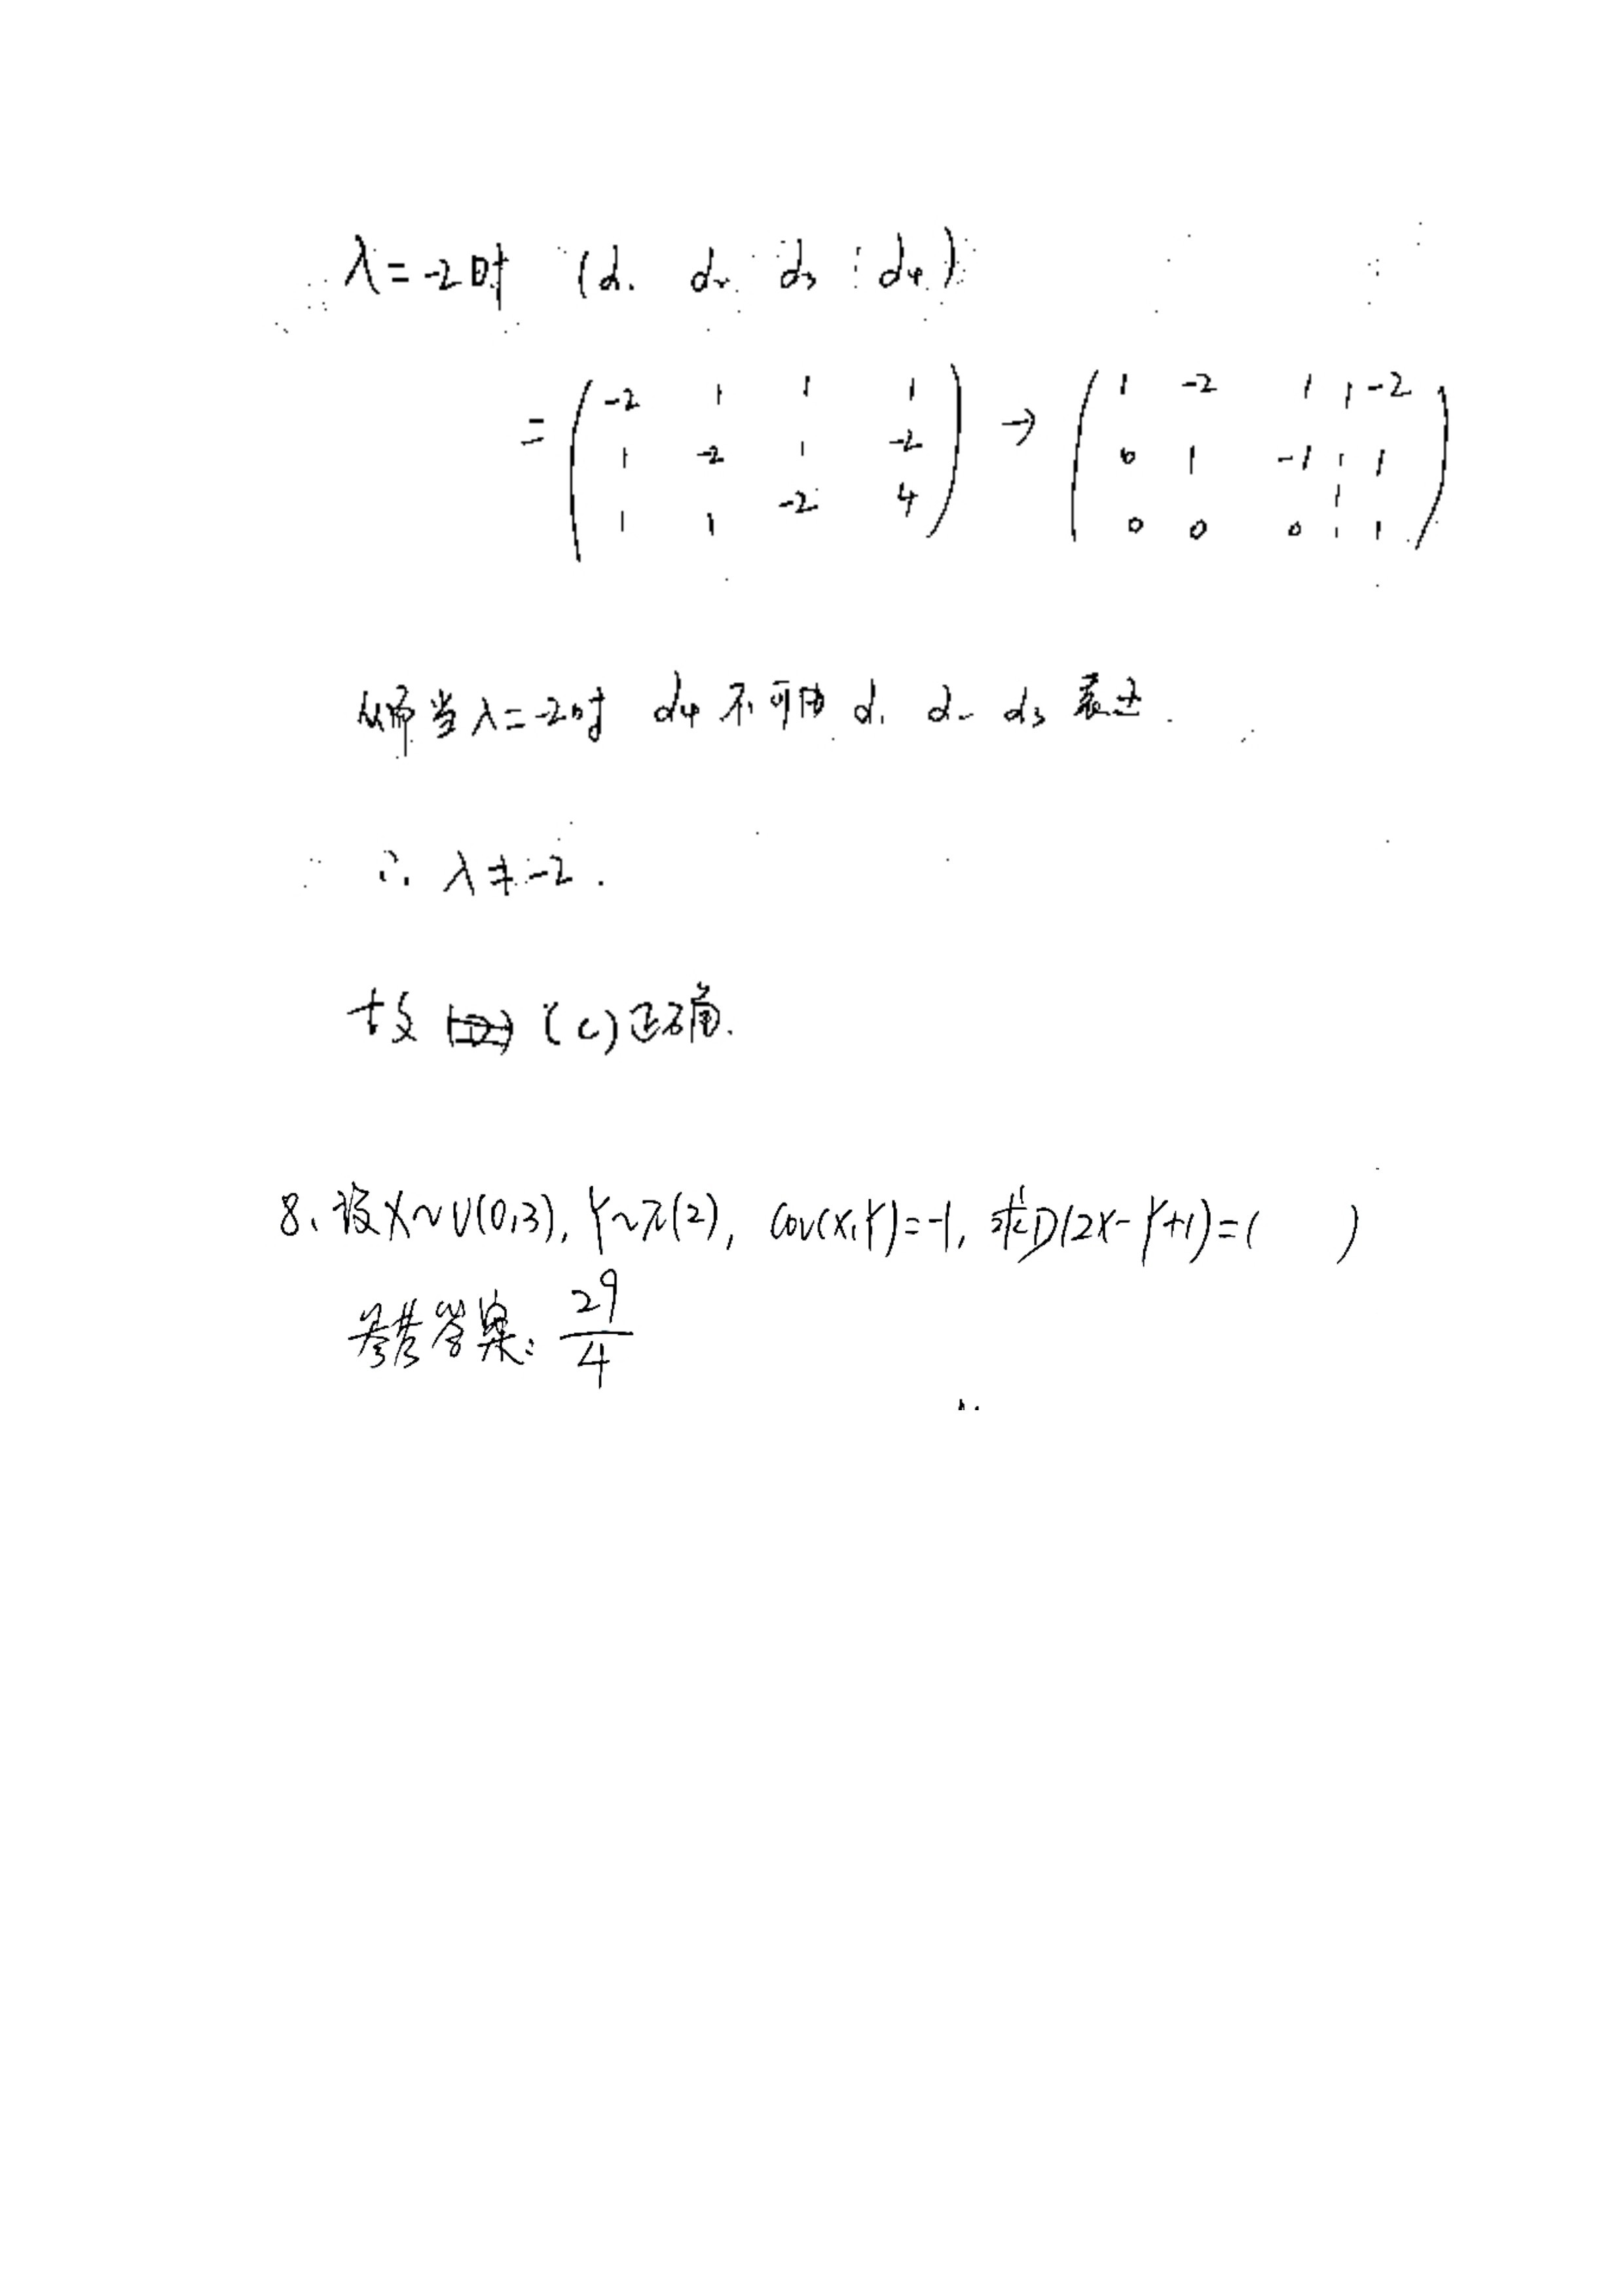 λ=-2时 (α₁ α₂ α₃ ⋮ α₄)
= ( -2 1 1 1 ) → ( 1 -2 1 ¦ -2 )
1 -2 1 -2  0 1 -1 ¦ 1
1 1 -2 4  0 0 0 ¦ 1
从而当λ=-2时 α₄不可由α₁ α₂ α₃表达.
∴ λ≠-2.
故 (C)正确.
8、设X~U(0,3), Y~π(2), Cov(X,Y)=-1, 求D(2X-Y+1)=( )
参考答案: 29/4